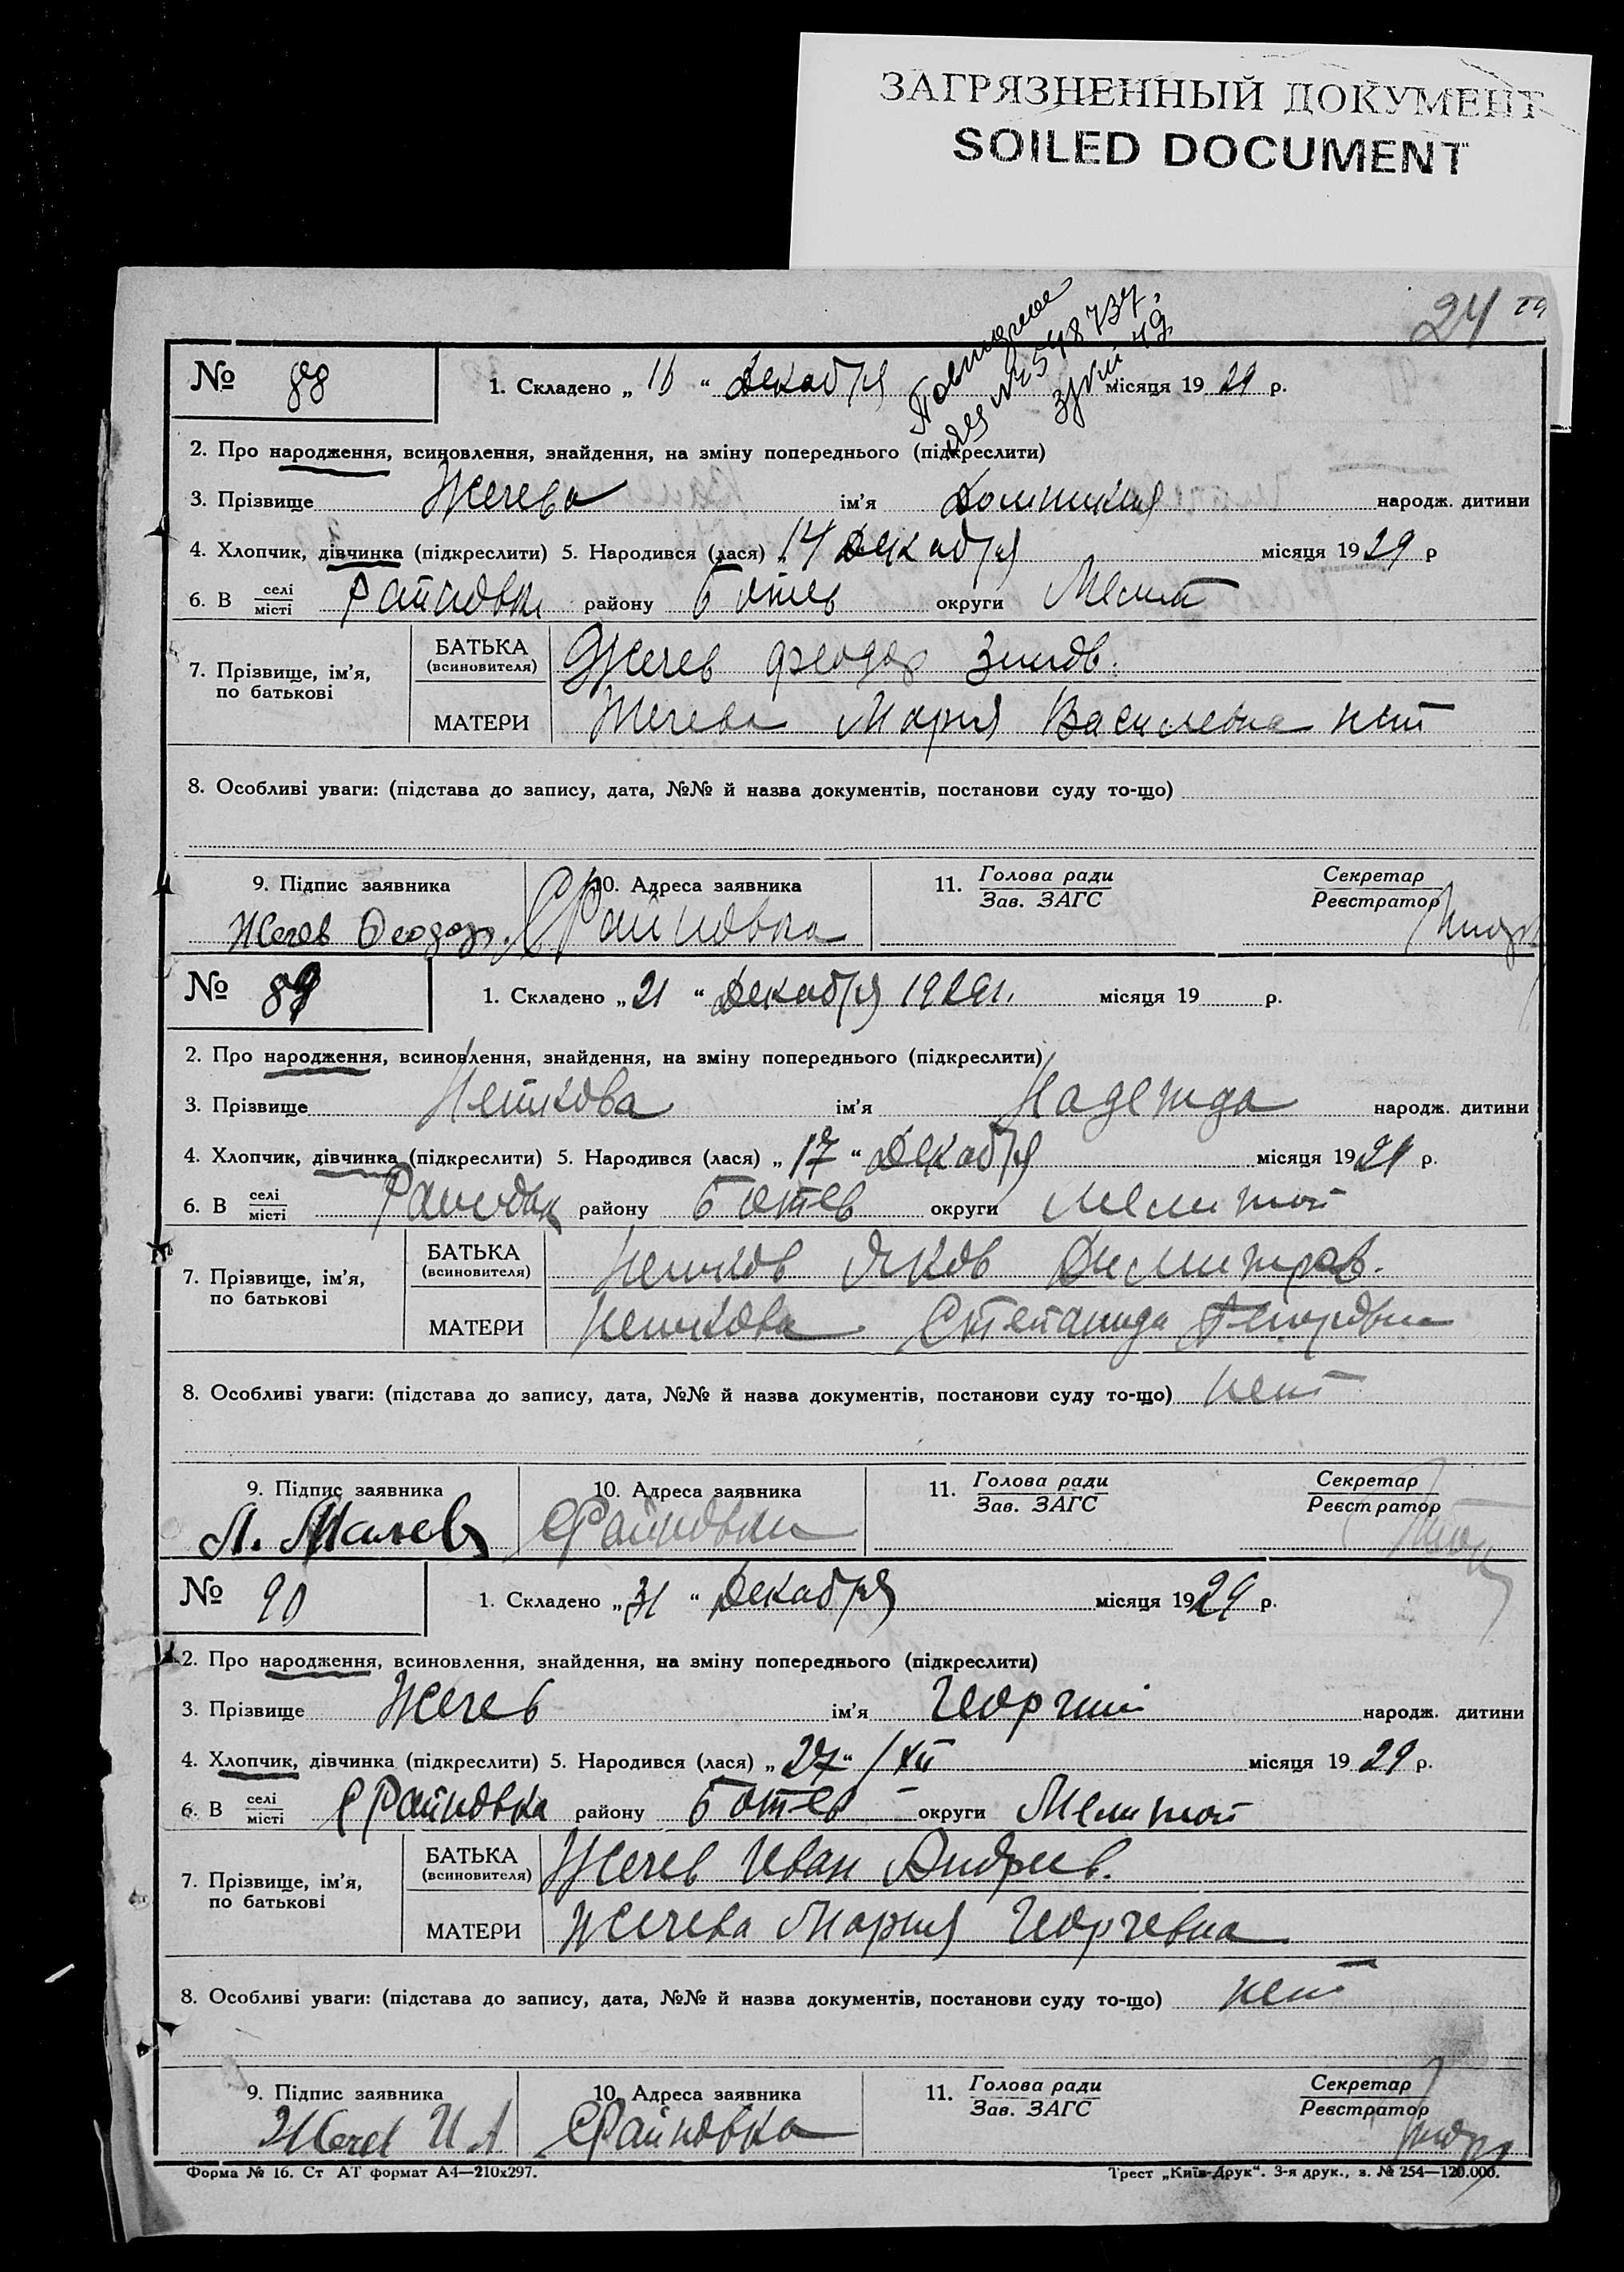 ЗАГРЯЗНЕННЫЙ ДОКУМЕНТ
SOILED DOCUMENT
24
№ 88
1. Складено „ 16 “ Декабря місяця 19 29 р.
2. Про народження, всиновлення, знайдення, на зміну попереднього (підкреслити)
3. Прізвище Жечева ім'я Домникия народж. дитини
4. Хлопчик, дівчинка (підкреслити) 5. Народився (лася) „ 14 Декабря місяця 19 29 р
6. В селі місті Райновка району Ботев округи Мелит
7. Прізвище, ім'я, по батькові
БАТЬКА (всиновителя) Жечев Феодор
МАТЕРИ Жечева Мария Василевна нет
8. Особливі уваги: (підстава до запису, дата, №№ й назва документів, постанови суду то-що)
9. Підпис заявника 10. Адреса заявника 11. Голова ради Зав. ЗАГС Секретар Реєстратор
Жечев Феодор. С Райновка
№ 89
1. Складено „ 21 “ Декабря 1929 г. місяця 19 р.
2. Про народження, всиновлення, знайдення, на зміну попереднього (підкреслити)
3. Прізвище Неикова ім'я Надежда народж. дитини
4. Хлопчик, дівчинка (підкреслити) 5. Народився (лася) „ 17 “ Декабря місяця 19 29 р.
6. В селі місті Райновка району Ботев округи Мелитоп
7. Прізвище, ім'я, по батькові
БАТЬКА (всиновителя) Неиков Яков Димитров.
МАТЕРИ Неикова Степанида
8. Особливі уваги: (підстава до запису, дата, №№ й назва документів, постанови суду то-що) нет
9. Підпис заявника 10. Адреса заявника 11. Голова ради Зав. ЗАГС Секретар Реєстратор
С Райновка
№ 90
1. Складено „ 31 “ Декабря місяця 19 29 р.
2. Про народження, всиновлення, знайдення, на зміну попереднього (підкреслити)
3. Прізвище Жечев ім'я Георгий народж. дитини
4. Хлопчик, дівчинка (підкреслити) 5. Народився (лася) „ 27 “ / XII місяця 19 29 р.
6. В селі місті С Райновка району Ботев округи Мелитоп
7. Прізвище, ім'я, по батькові
БАТЬКА (всиновителя) Жечев Иван Андреев.
МАТЕРИ Жечева Мария Георгевна
8. Особливі уваги: (підстава до запису, дата, №№ й назва документів, постанови суду то-що) нет
9. Підпис заявника 10. Адреса заявника 11. Голова ради Зав. ЗАГС Секретар Реєстратор
Жечев И А С Райновка
Форма № 16. Ст АТ формат А4—210х297. Трест „Київ-Друк“. 3-я друк., з. № 254—120.000.